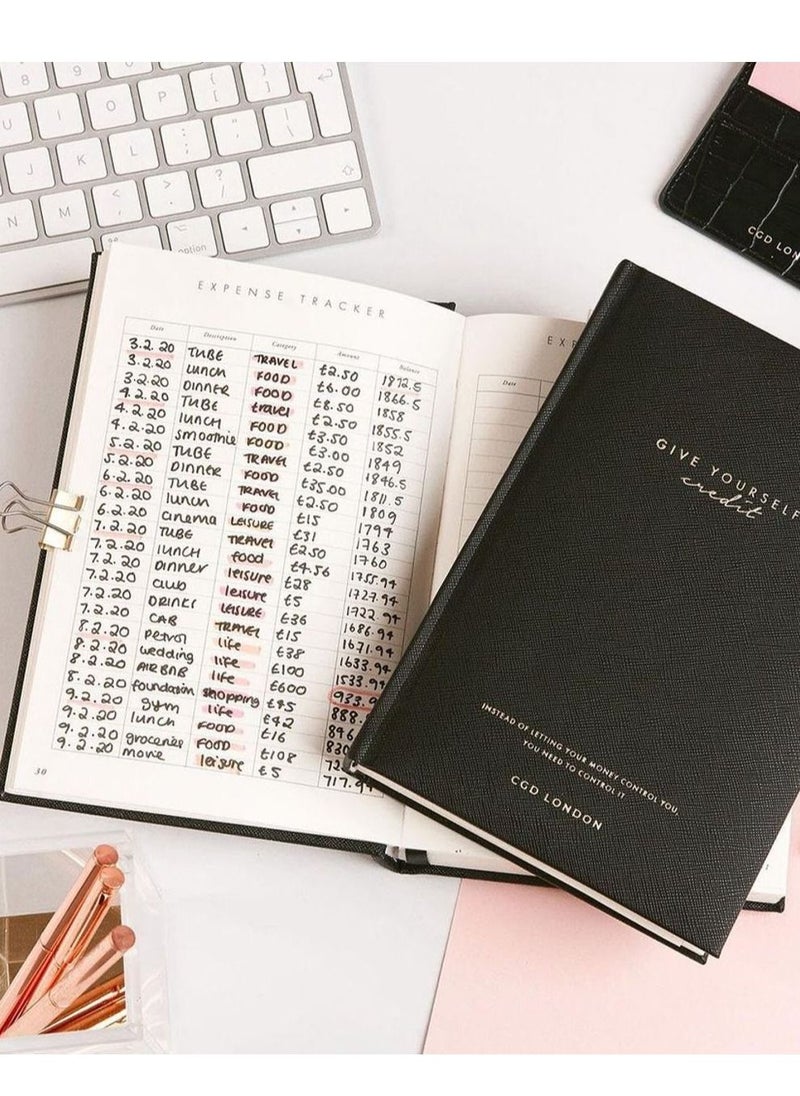 U I O P { [ } ]
J K L : ; " ' | \
N M < , > . ? /
option
CGD LON
EXPENSE TRACKER
Date Description Category Amount Balance
3.2.20 TUBE TRAVEL £2.50 1872.5
3.2.20 LUNCH FOOD £6.00 1866.5
3.2.20 DINNER FOOD £8.50 1858
4.2.20 TUBE travel £2.50 1855.5
4.2.20 LUNCH FOOD £3.50 1852
4.2.20 smoothie FOOD £3.00 1849
5.2.20 TUBE TRAVEL £2.50 1846.5
5.2.20 Dinner FOOD £35.00 1811.5
6.2.20 TUBE TRAVEL £2.50 1809
6.2.20 lunch FOOD £15 1794
6.2.20 cinema LEISURE £31 1763
7.2.20 TUBE TRAVEL £2.50 1760
7.2.20 lUNCH food £4.56 1755.94
7.2.20 Dinner leisure £28 1727.94
7.2.20 CLUB leisure £5 1722.94
7.2.20 DRINKS LEISURE £36 1686.94
7.2.20 CAB TRAVEL £15 1671.94
8.2.20 Petrol life £38 1633.94
8.2.20 wedding life £100 1533.94
8.2.20 AIRBNB life £600 933.9
8.2.20 foundation shopping £45 888.
9.2.20 Gym life £42 846
9.2.20 lunch FOOD £16 830
9.2.20 groceries FOOD £108 72
9.2.20 movie leisure £5 717.9
30
EXP
Date
GIVE YOURSELF
credit
INSTEAD OF LETTING YOUR MONEY CONTROL YOU,
YOU NEED TO CONTROL IT
CGD LONDON